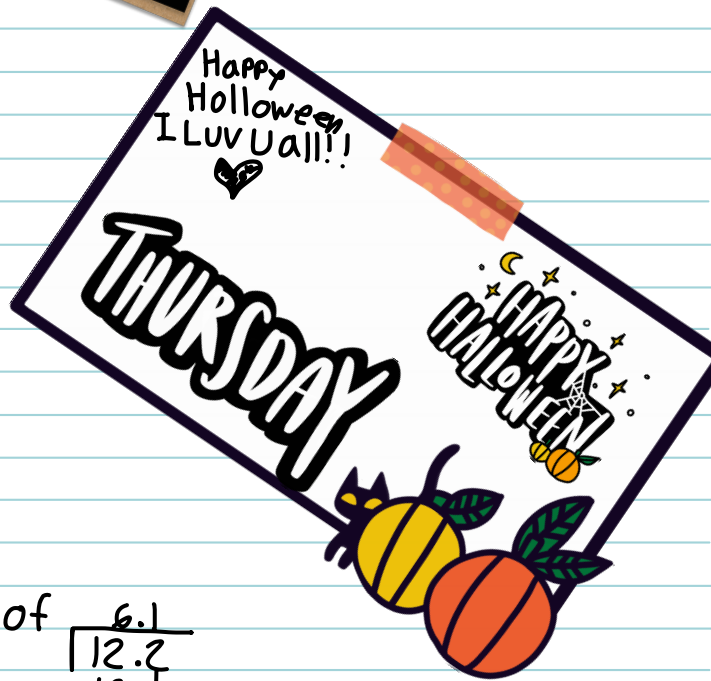 Happy
Holloween
I Luv U all!!
THURSDAY
HAPPY
HALLOWEEN!
of 6.1
12.2